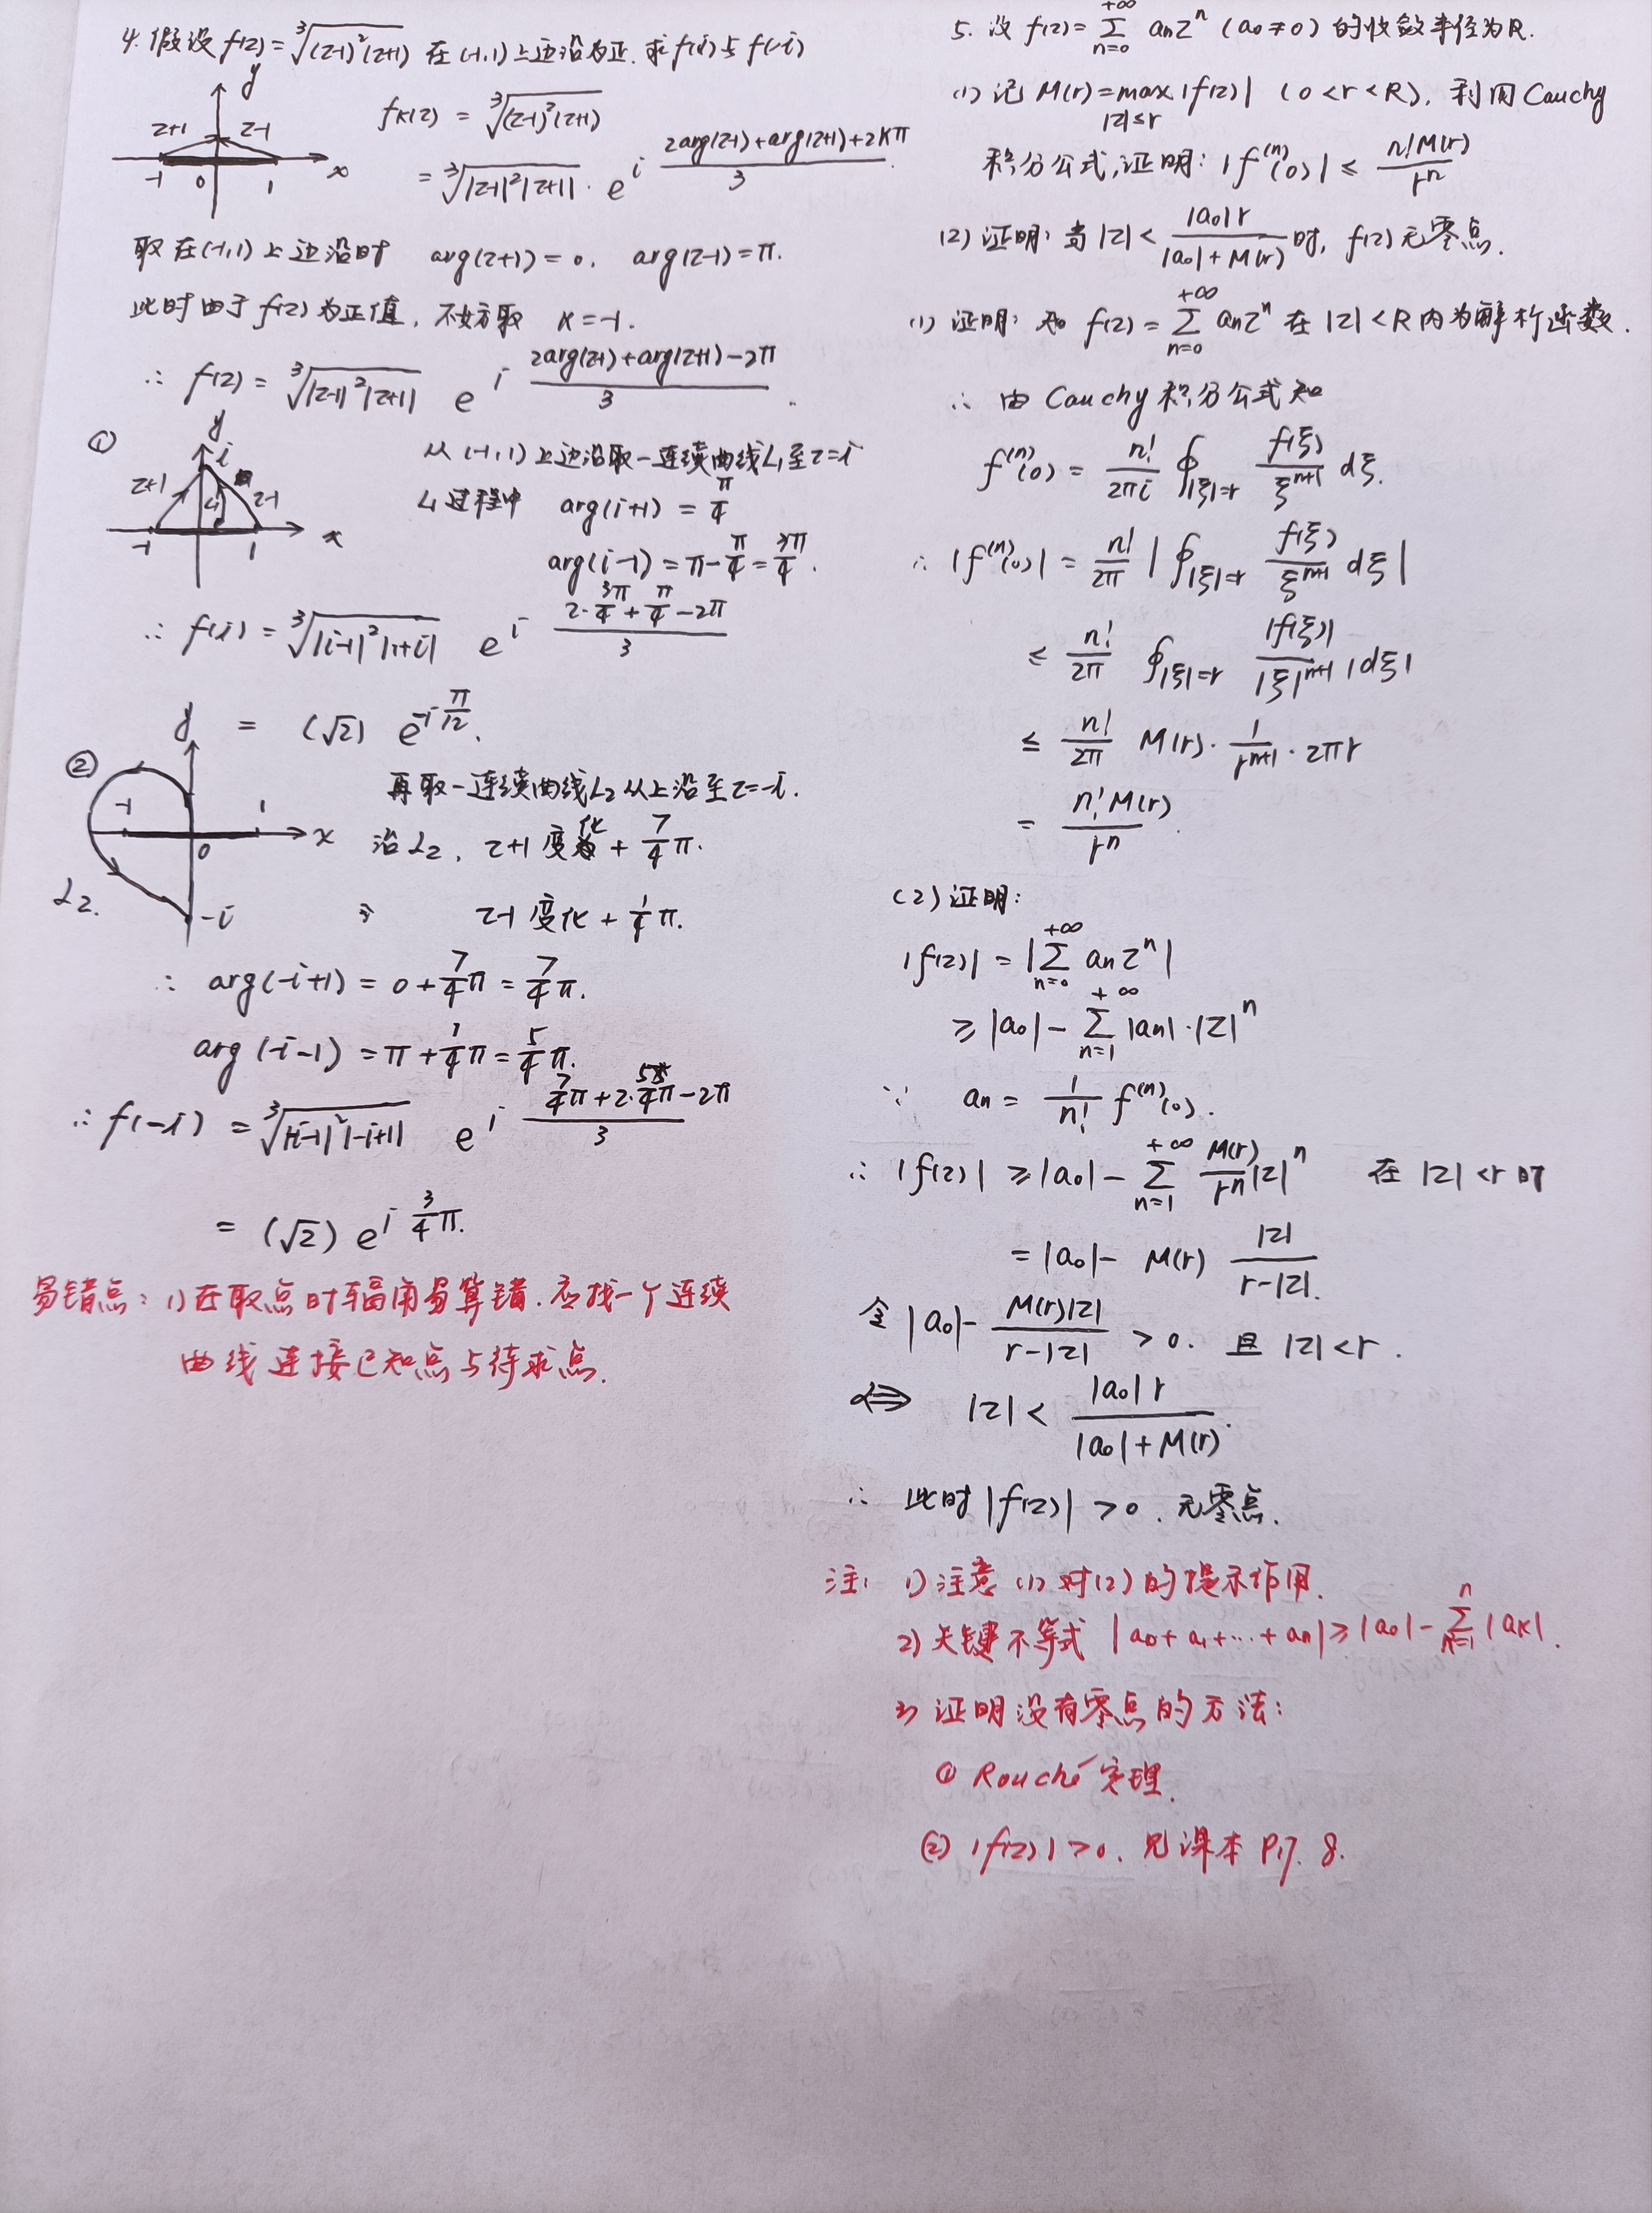 4. 假设 f(z)=∛((z-1)²(z+1)) 在(-1,1)上边沿为正. 求f(i)与f(-i)
y
z+1 z-1
-1 0 1 x
f_k(z) = ∛((z-1)²(z+1))
= ∛(|z-1|²|z+1|) · e^{i (2arg(z-1)+arg(z+1)+2kπ)/3}.
取在(-1,1)上边沿时 arg(z+1)=0. arg(z-1)=π.
此时由于f(z)为正值, 不妨取 k=-1.
∴ f(z) = ∛(|z-1|²|z+1|) e^{i (2arg(z-1)+arg(z+1)-2π)/3}.
①
y
i
z+1 L₁ z-1
-1 1 x
从(-1,1)上边沿取一连续曲线L₁至z=i
L₁过程中 arg(i+1) = π/4
arg(i-1) = π-π/4 = 3π/4.
∴ f(i) = ∛(|i-1|²|1+i|) e^{i (2·3π/4+π/4-2π)/3}
= (√2) e^{-i π/12}.
②
y
-1 0 1 x
L₂. -i
再取一连续曲线L₂从上沿至z=-i.
沿L₂, z+1变化 + 7/4 π.
z-1 变化 + 1/4 π.
∴ arg(-i+1) = 0+7/4 π = 7/4 π.
arg(-i-1) = π+1/4 π = 5/4 π.
∴ f(-i) = ∛(|-i-1|²|-i+1|) e^{i (7/4 π+2·5/4 π-2π)/3}
= (√2) e^{i 3/4 π}.
易错点: 1) 在取点时辐角易算错. 应找一个连续
曲线连接已知点与待求点.
5. 设 f(z)=∑_{n=0}^{+∞} aₙzⁿ (a₀≠0) 的收敛半径为R.
(1) 记 M(r)=max_{|z|≤r}|f(z)| (0<r<R), 利用Cauchy
积分公式,证明: |f^{(n)}(0)| ≤ n!M(r)/rⁿ
(2) 证明: 当|z| < |a₀|r/(|a₀|+M(r)) 时, f(z)无零点.
(1) 证明: 知 f(z)=∑_{n=0}^{+∞} aₙzⁿ 在|z|<R内为解析函数.
∴ 由Cauchy积分公式知
f^{(n)}(0) = n!/(2πi) ∮_{|ξ|=r} f(ξ)/ξ^{n+1} dξ.
∴ |f^{(n)}(0)| = n!/2π |∮_{|ξ|=r} f(ξ)/ξ^{n+1} dξ|
≤ n!/2π ∮_{|ξ|=r} |f(ξ)|/|ξ|^{n+1} |dξ|
≤ n!/2π M(r)· 1/r^{n+1} · 2πr
= n!M(r)/rⁿ.
(2) 证明:
|f(z)| = |∑_{n=0}^{+∞} aₙzⁿ|
≥ |a₀| - ∑_{n=1}^{+∞} |aₙ|·|z|ⁿ
∵ aₙ = 1/n! f^{(n)}(0).
∴ |f(z)| ≥ |a₀| - ∑_{n=1}^{+∞} M(r)/rⁿ |z|ⁿ 在|z|<r时
= |a₀| - M(r) |z|/(r-|z|).
令 |a₀| - M(r)|z|/(r-|z|) > 0. 且 |z|<r.
⇔ |z| < |a₀|r/(|a₀|+M(r)).
∴ 此时|f(z)|>0. 无零点.
注: 1) 注意(1)对(2)的提示作用.
2) 关键不等式 |a₀+a₁+⋯+aₙ| ≥ |a₀| - ∑_{k=1}^{n} |aₖ|.
3) 证明没有零点的方法:
① Rouché定理.
② |f(z)|>0. 见课本 P17. 8.